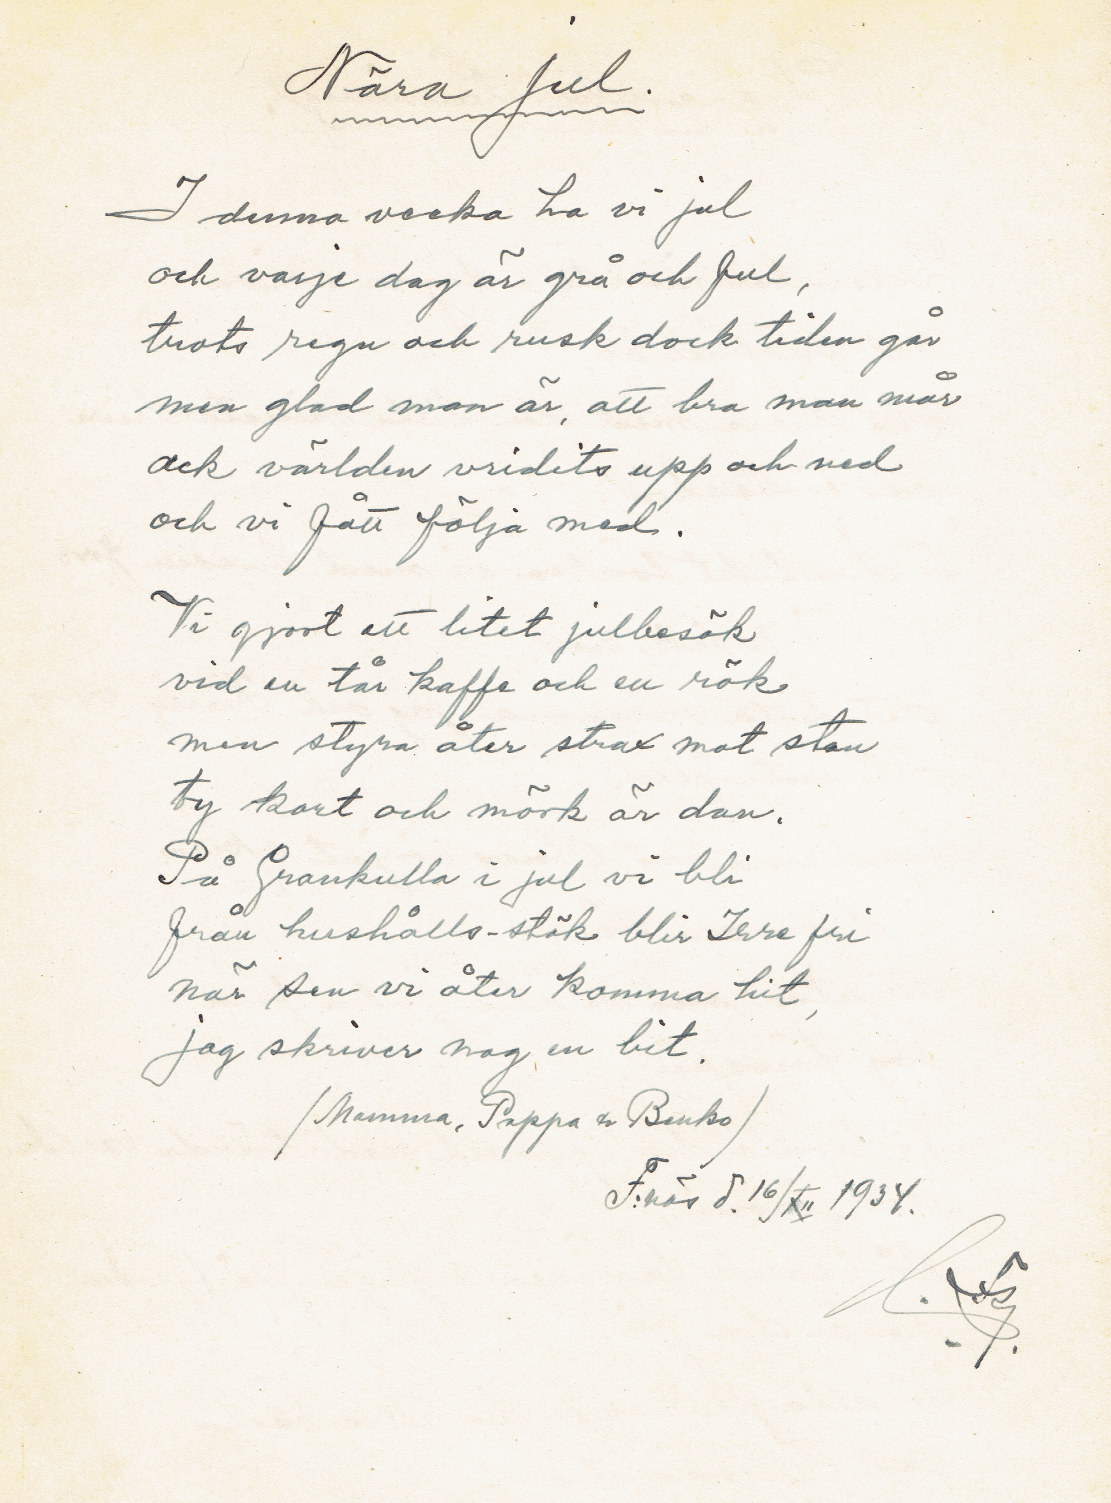 Nära jul.
I denna vecka ha vi jul
och varje dag är grå och ful,
trots regn och rusk dock tiden går
men glad man är, att bra man mår
ack världen vridits upp och ned
och vi fått följa med.
Vi gjort ett litet julbesök
vid en tår kaffe och en rök
men styra åter strax mot stan
ty kort och mörk är dan.
På Grankulla i jul vi bli
från hushålls-stök blir Irre fri
när sen vi åter komma hit,
jag skriver nog en bit.
(Mamma, Pappa & Benko)
F:näs d. 16/XII 1934.